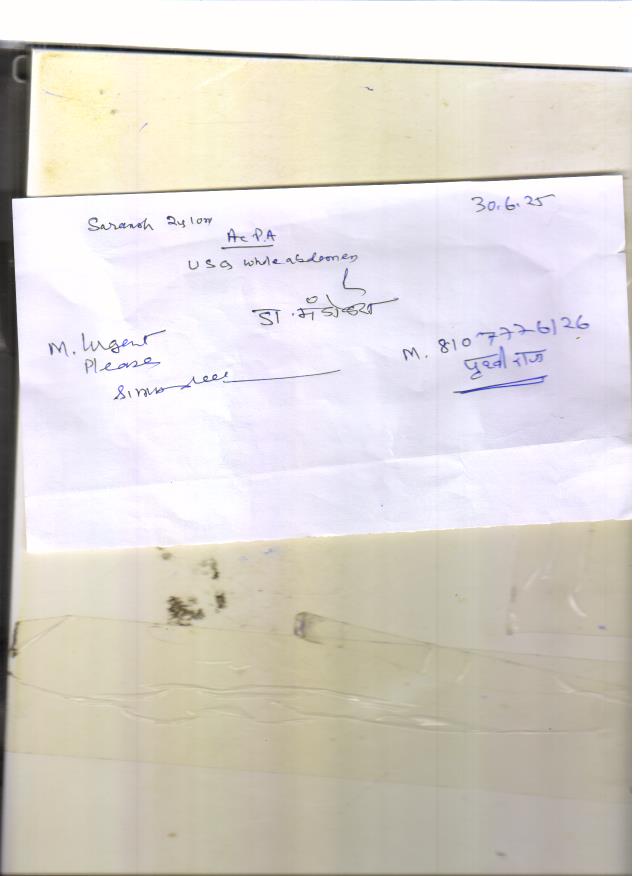 30.6.25
Saransh 2y 10m
Ac P.A
USG whole abdomen
डा.
M. Urgent
Please
M. 8107776126
पृथ्वीराज